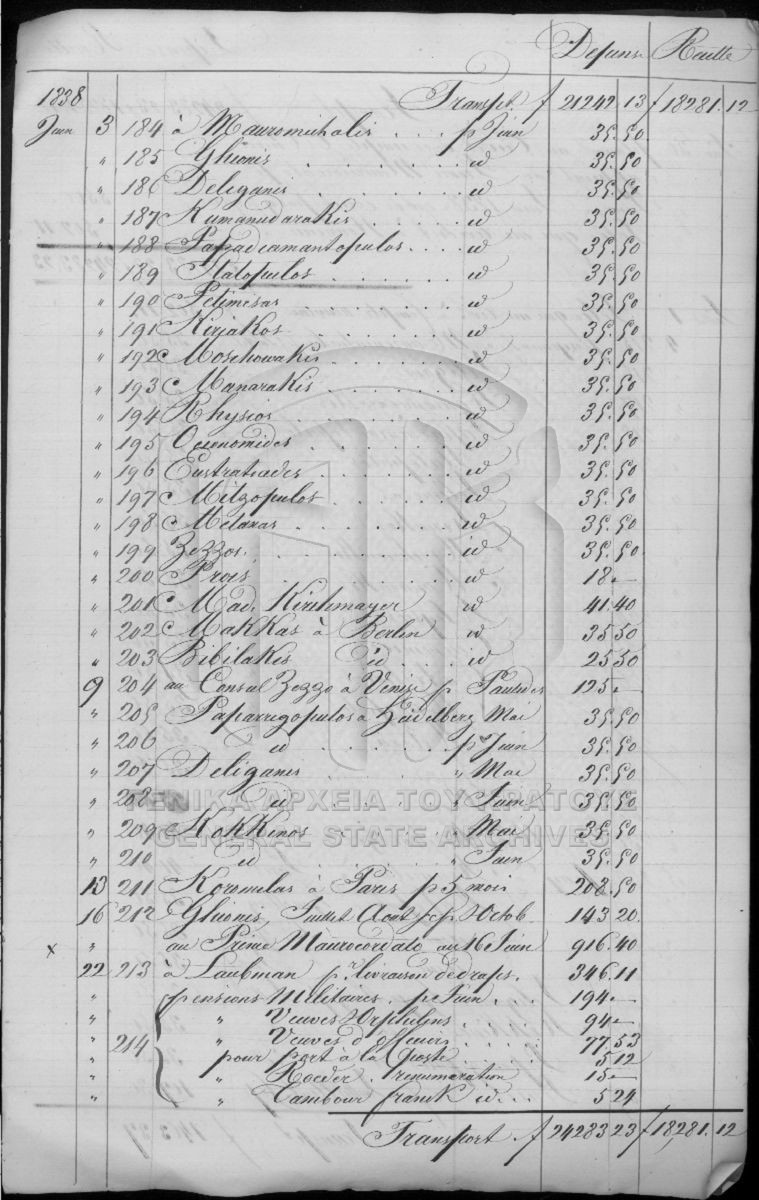 Depense Recette
1838 Transpt. f 21242.13 f 18281.12
Juin 3 184 à Mauromichalis . . . p Juin 35.50
" 185 Ghionis . . . id 35.50
" 186 Deliganis . . . id 35.50
" 187 Kumanudarakis . . . id 35.50
" 188 Papadiamantopulos . . . id 35.50
" 189 Statopulos . . . id 35.50
" 190 Petimesas . . . id 35.50
" 191 Kirjakos . . . id 35.50
" 192 Moschowakis . . . id 35.50
" 193 Manarakis . . . id 35.50
" 194 Rhysios . . . id 35.50
" 195 Oeconomides . . . id 35.50
" 196 Eustratiades . . . id 35.50
" 197 Mitzopulos . . . id 35.50
" 198 Metaxas . . . id 35.50
" 199 Zezzos . . . id 35.50
" 200 Prois . . . id 18.—
" 201 Mad. Kirchmayer id 41.40
" 202 Makkas à Berlin id 35.50
" 203 Bibilakis id . . . id 25.50
9 204 au Consul Zezzo à Venise p Paulides 125.—
" 205 Paparrigopulos à Heidelberg Mai 35.50
" 206 id . . . pr Juin 35.50
" 207 Deliganis . . . " Mai 35.50
" 208 id . . . " Juin 35.50
" 209 Kokkinos . . . " Mai 35.50
" 210 id . . . " Juin 35.50
13 211 Koromilas à Paris p 5 mois 208.50
16 212 Ghionis, Juillet Aout Sep Octob. 143.20
x " au Prince Maurocordato au 16 Juin 916.40
22 213 à Laubman pr livraison de draps. 346.11
" pensions Militaires. p Juin . . . 194.—
" " Veuves & Orphelins . . . 94.—
" 214 " Veuves d'officiers . . . 77.53
" pour port à la Poste . . . 5.12
" " Roeder . remuneration 15.—
" " Tambour franck id . . . 5.24
Transport . f 24283.23 f 18,281.12
ΓΕΝΙΚΑ ΑΡΧΕΙΑ ΤΟΥ ΚΡΑΤΟΥΣ
GENERAL STATE ARCHIVES